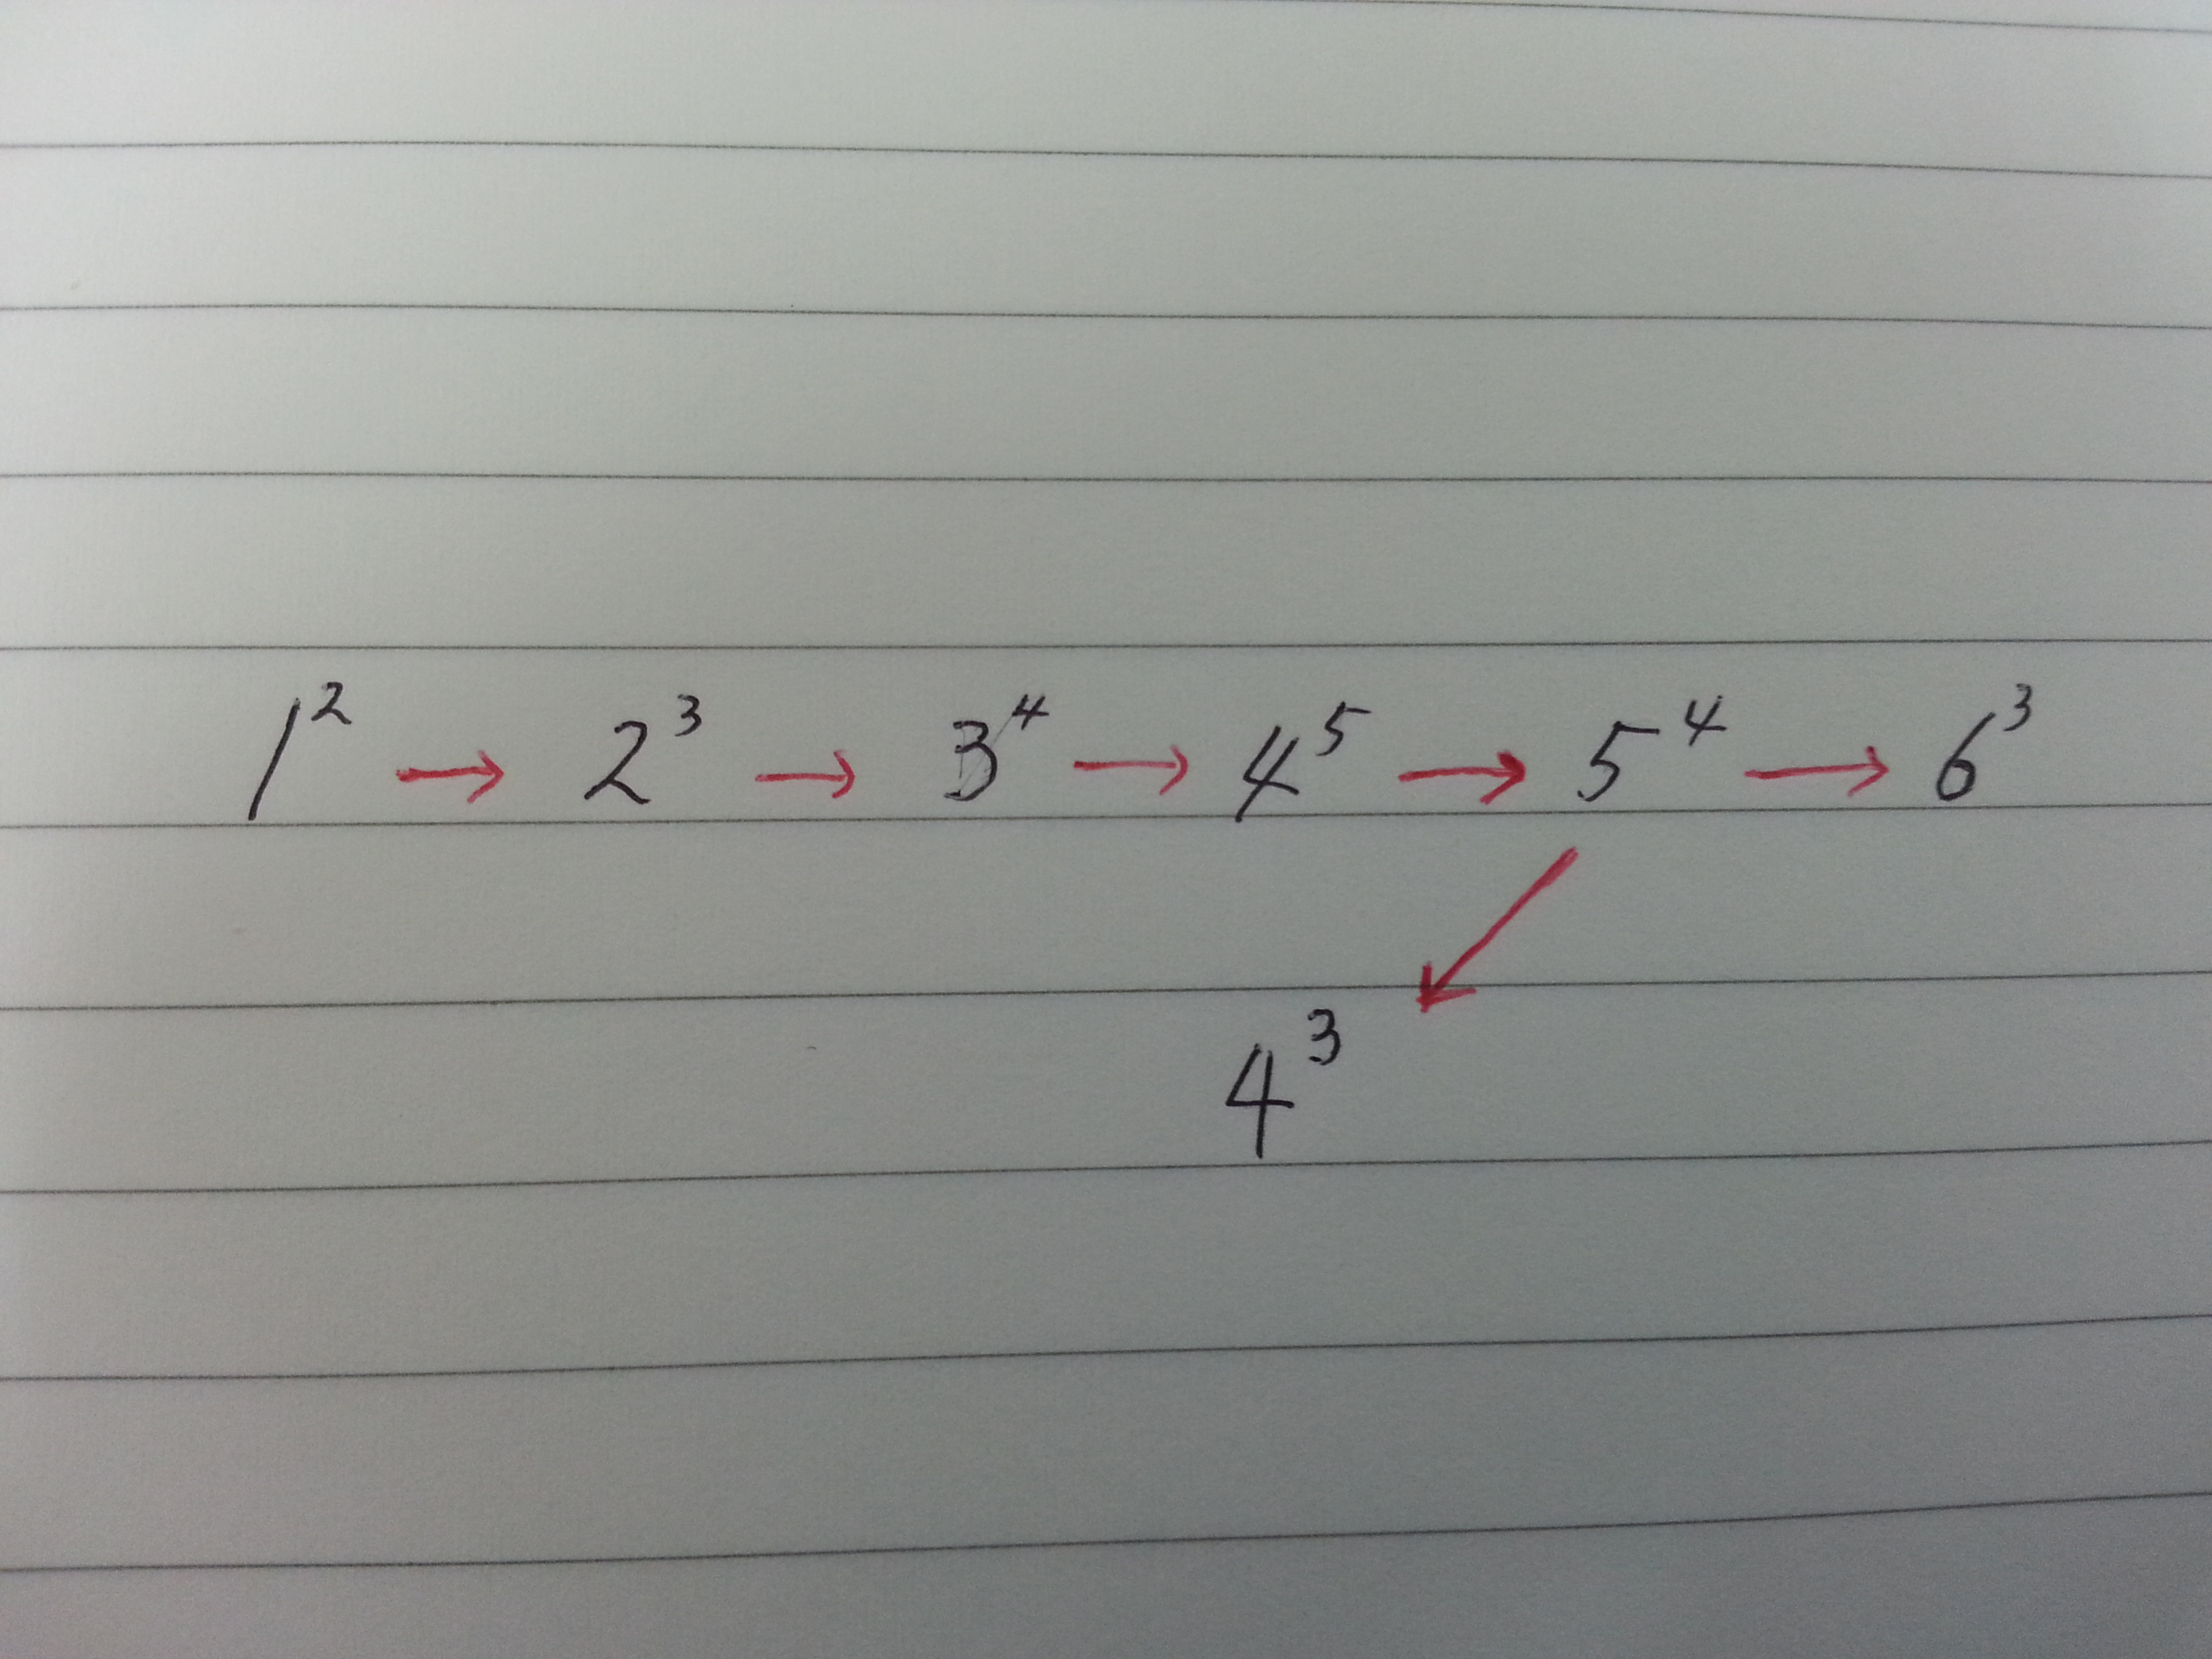 1² → 2³ → 3⁴ → 4⁵ → 5⁴ → 6³
↙
4³